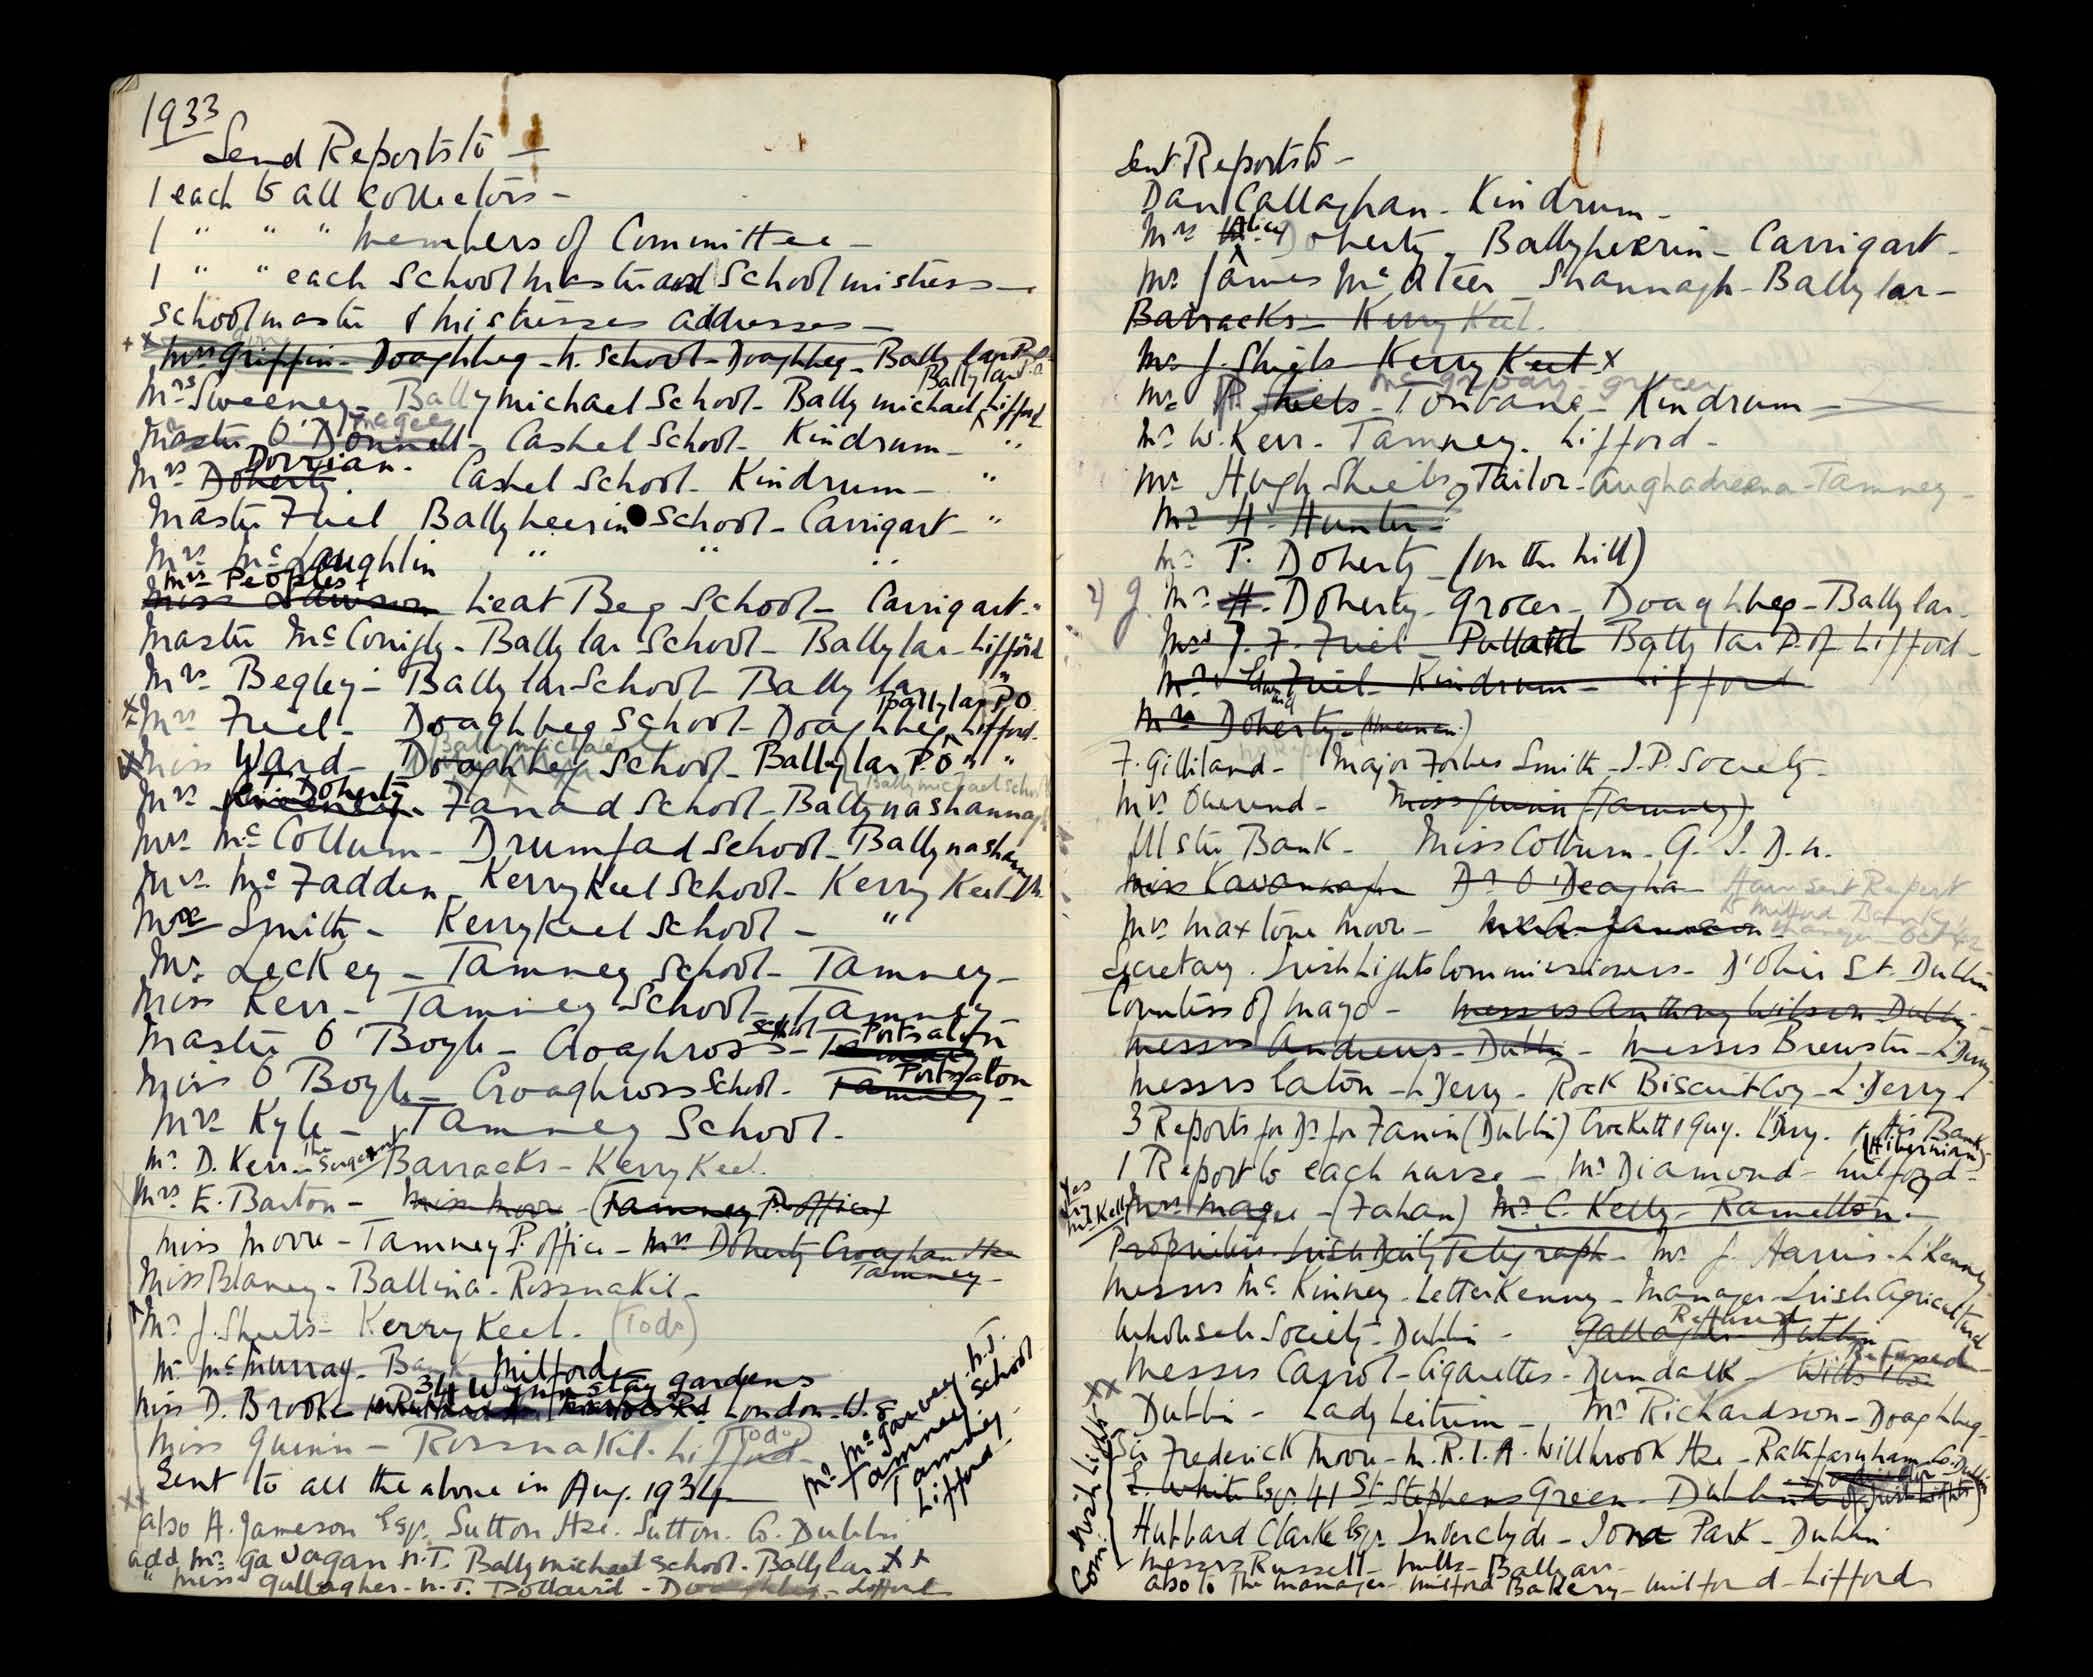 1933
Send Reports to -
1 each to all collectors -
1 " " " members of Committee -
1 " " each School master and School mistress -
School master & mistresses addresses -
Mrs Griffin - Doaghbeg - N. School - Doaghbeg - Ballylar P.O.
Ballylar P.O.
Mrs Sweeney - Ballymichael School - Ballymichael, Lifford
Magee
Master O'Donnell - Cashel School - Kindrum - "
Dorrian.
Mrs Doherty. Cashel School - Kindrum - "
Master Friel Ballyheerin School - Carrigart - "
Mrs McLaughlin " " "
Mrs Peoples
Miss Lawson Leat Beg School - Carrigart - "
Master McConigly - Ballylar School - Ballylar - Lifford
Mrs Begley - Ballylar School - Ballylar "
Ballylar P.O.
Mrs Friel - Doaghbeg School - Doaghbeg, Lifford -
Ballymichael
Miss Ward - Doaghbeg School - Ballylar P.O. " "
Doherty Ballymichael School
Mrs Fanad School - Ballynashannagh
Mrs McCollum - Drumfad School - Ballynashannagh
Mrs McFadden - Kerrykeel School - Kerry Keel
Smith - Kerrykeel School - "
Mr. Leckey - Tamney School - Tamney -
Miss Kerr - Tamney School - Tamney -
School Portsalon
Master O'Boyle - Croaghross - Tamney
Portsalon
Miss O'Boyle - Croaghross School. Tamney -
Mrs Kyle - Tamney School.
Mr D. Kerr. The Sergeant Barracks - Kerry Keel.
Mrs E. Barton - Miss Moore - (Tamney P. office)
Miss Moore - Tamney P. office - Mrs Doherty Croaghan Hse
Tamney -
Miss Blaney - Ballina - Rossnakil -
Mr J. Shiels - Kerry Keel. (Todo)
Mr McMurray. Bank Milford -
34 Wynnstay gardens
Miss D. Brooke London - W. 8
Miss Quinn - Rossnakil - Lifford - (Todo)
Sent to all the above in Aug. 1934
also A. Jameson Esq. Sutton Hse. Sutton. Co. Dublin
add Mr Gavagan N.T. Ballymichael School - Ballylar x x
" Miss Gallagher - N.T. Pollaird - Doaghbeg - Lifford
Mr McGarvey. N.T.
Tamney School
Tamney
Lifford -
Sent Reports to -
Dan Callaghan - Kindrum -
Mrs Alice Doherty - Ballyheerin - Carrigart -
Mr James McAteer Shannagh - Ballylar -
Barracks - Kerry Keel.
Mr J. Shiels Kerry Keel x
McGroary - grocer
Mr P. Shiels - Tonbane - Kindrum -
Mr W. Kerr - Tamney. Lifford -
Mr Hugh Shiels, Tailor - Aughadreena - Tamney -
Mr H. Hunter -
Mr P. Doherty - (on the hill)
Mr H. Doherty - grocer - Doaghbeg - Ballylar -
Mr J. F. Friel - Pollaid Ballylar P. of Lifford -
Mr Friel - Kindrum - Lifford
Mrs Doherty -
F. Gilliland - Major Forbes Smith - J.P. Society -
Mrs Overend - Miss Quinn (Tamney)
Ulster Bank - Miss Colburn - Q. I. D. N.
Miss Kavannagh Dr O'Deagha - Have sent Report
to Milford Bank
Manager - Oct 42
Mrs Maxtone Moore -
Secretary. Irish Lights Commissioners - D'Olier St. Dublin
Countess of Mayo - Messrs Anthony Wilson Dublin
Messrs Andrews - Dublin - Messrs Brewster - L'Derry -
Messrs Eaton - L'Derry - Rock Biscuit Coy - L'Derry -
3 Reports for Dr for Fanin (Dublin) Crockett & Guy. L'Derry. & His Bank
(Hibernian)
1 Report to each nurse - Mr Diamond - Milford -
Yes
Mr Kelly
Mrs Magee - (Fahan) Mr C. Kelly - Ramelton ?
Proprietors - Irish Daily Telegraph - Mr J. Harris - L'Kenny
Messrs McKinney - Letterkenny - Manager - Irish Agricultural
Wholesale Society - Dublin - Gallagher Dublin Refused
Messrs Carrol - Cigarettes - Dundalk - Wills Refused
Dublin - Lady Leitrim - Mr Richardson - Doaghbeg -
Sir Frederick Moore - M.R.I.A. Willbrook Hse - Rathfarnham - Co. Dublin
E. White Esq. 41 St Stephens Green - Dublin of Irish Lights)
Hubbard Clarke Esq. Inverclyde - Iona Park - Dublin
Messrs Russell - Mills -
also to The Manager - Milford Bakery - Milford - Lifford
Irish Lights